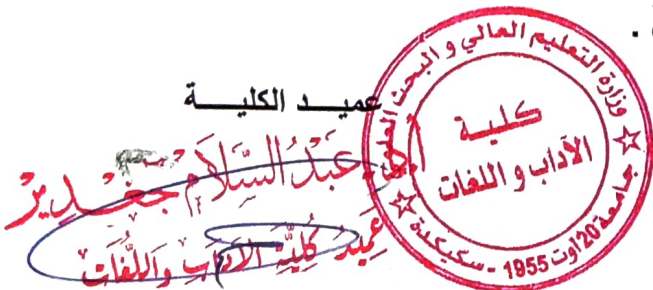 عميد الكليـــة
أ.د. عَبْدُ السَّلَامِ جغدير
عَمِيدُ كُلِّيَّةِ الآدَابِ وَاللُّغَاتِ
وزارة التعليم العالي و البحث العلمي
كليـة
الآداب و اللغات
جامعة 20 اوت 1955 - سكيكدة